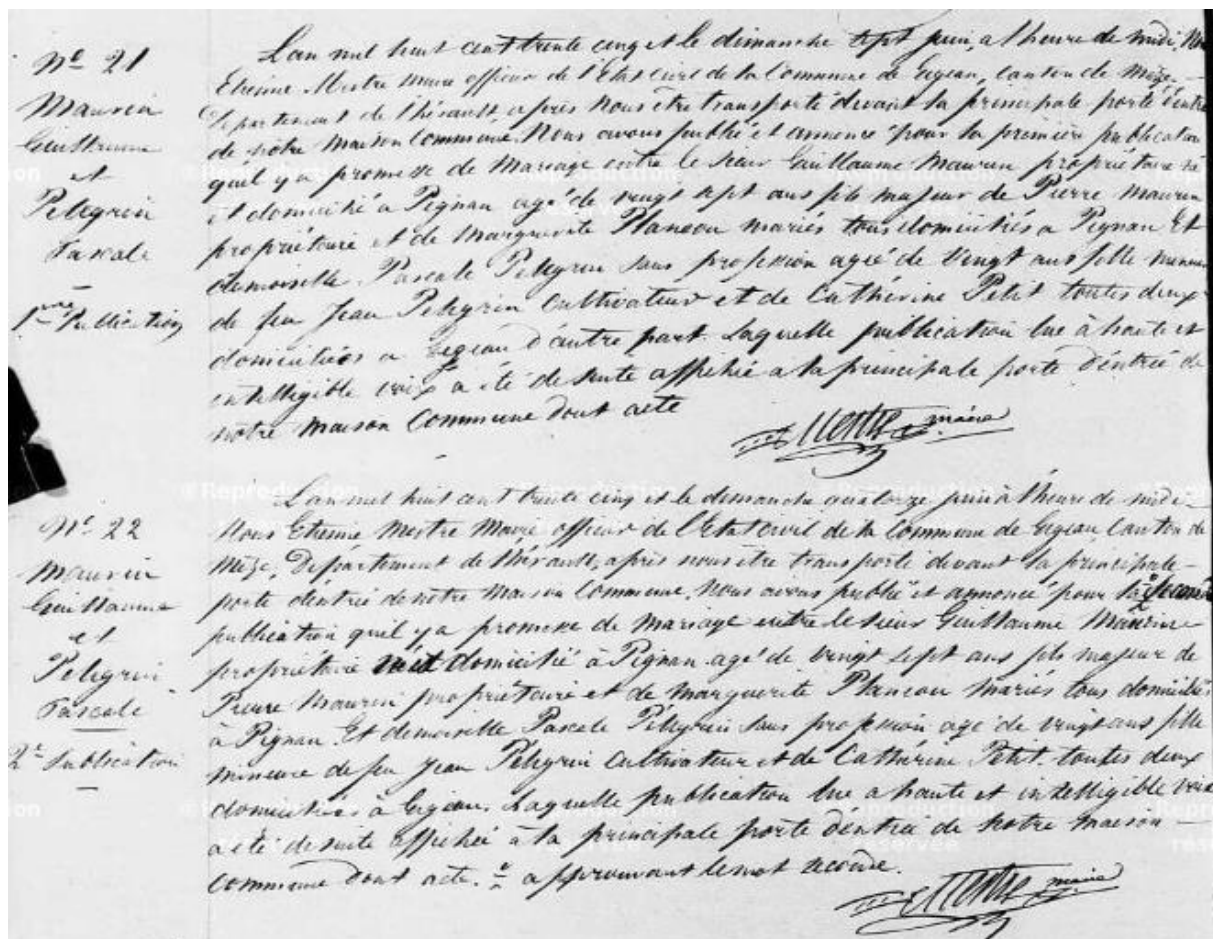 Nº 21
Maurin
Guillaume
et
Pelegrin
Pascale
1ere Publication
L'an mil huit cent trente cinq et le dimanche sept juin, a l'heure de midi, Nous
Etienne Mestre maire officier de l'Etat Civil de la Commune de Gigean, Canton de Mèze
Département de l'hérault, après nous être transporté devant la principale porte d'entrée
de notre maison commune. Nous avons publié et annoncé pour la première publication
qu'il y a promesse de mariage entre le sieur Guillaume Maurin propriétaire né
et domicilié a Pignan agé de vingt sept ans fils majeur de Pierre Maurin
propriétaire et de Marguerite Planeou mariés tous domiciliés a Pignan Et
demoiselle Pascale Pelegrin sans profession agée de Vingt ans fille mineure
de feu Jean Pelegrin Cultivateur et de Cathérine Petit toutes deux
domiciliées a Gigean d'autre part. Laquelle publication lue à haute et
intelligible voix a été de suite affichée a la principale porte d'entrée de
notre maison Commune dont acte
Mestre maire
Nº 22
Maurin
Guillaume
et
Pelegrin
Pascale
2e Publication
L'an mil huit cent trente cinq et le dimanche quatorze juin à l'heure de midi
Nous Etienne Mestre Maire officier de l'Etat Civil de la Commune de Gigean Canton de
Mèze, Département de l'hérault, après nous être transporté devant la principale
porte d'entrée de notre Maison Commune, Nous avons publié et annoncé pour la Seconde
publication qu'il y a promesse de Mariage entre le sieur Guillaume Maurin
propriétaire domicilié à Pignan agé de vingt sept ans fils majeur de
Pierre Maurin propriétaire et de Marguerite Planeou mariés tous domiciliés
à Pignan. Et demoiselle Pascale Pélegrin sans profession agé de vingt ans fille
mineure de feu Jean Pelegrin Cultivateur et de Cathérine Petit toutes deux
domiciliées à Gigean. Laquelle publication lue a haute et intelligible voix
a été de suite affichée à la principale porte d'entrée de notre maison
commune dont acte. approuvant le mot seconde.
Mestre maire